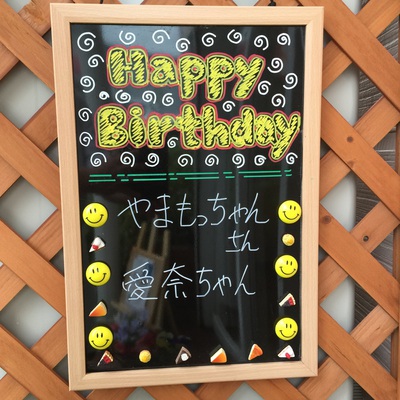 Happy
Birthday
やまもっちゃん
さん
愛奈ちゃん